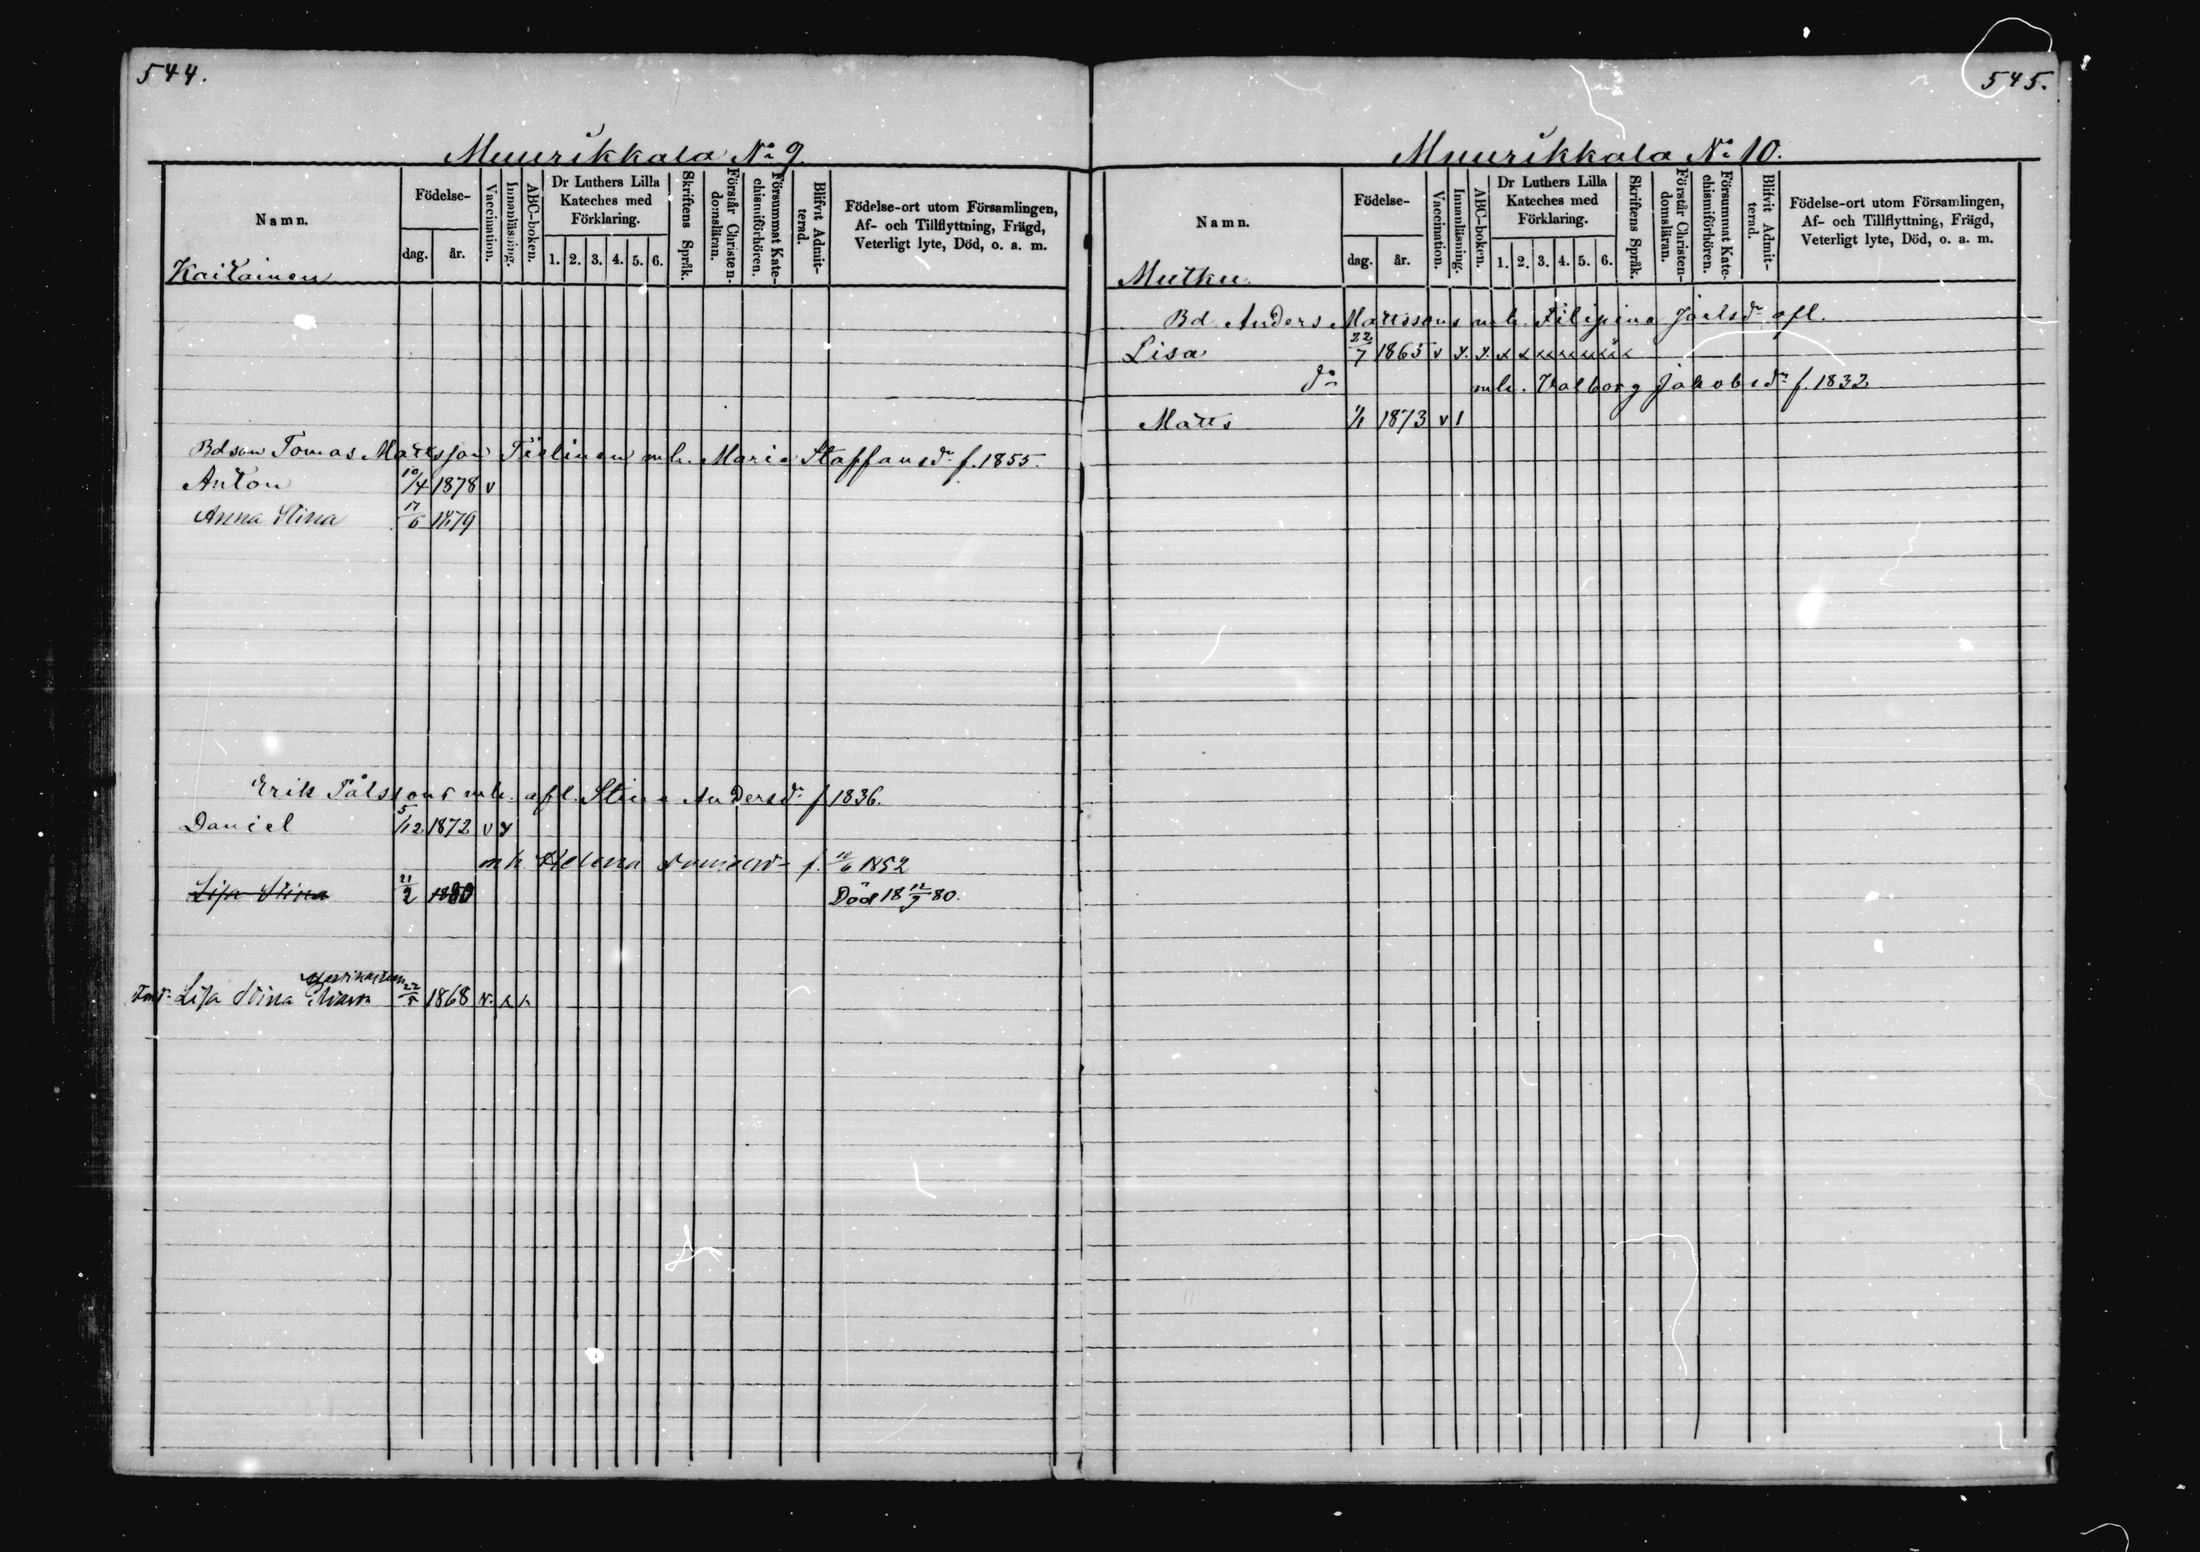 544.
Muurikkala No 9.
Namn.
Födelse-
dag.
år.
Vaccination.
Innanläsning.
ABC-boken.
Dr Luthers Lilla
Kateches med
Förklaring.
1. 2. 3. 4. 5. 6.
Skriftens Språk.
Förstår Christen-
domsläran.
Försummat Kate-
chismiförhören.
Blifvit Admit-
terad.
Födelse-ort utom Församlingen,
Af- och Tillflyttning, Frägd,
Veterligt lyte, Död, o. a. m.
Kaitainen
Bdson Tomas Mattsson Tielinen mh. Maria Staffansdr f. 1855.
Anton 10/4 1878 v
Anna Stina 17/6 1879
Erik Pålssons mh. afl. Stina Andersdr f 1836.
Daniel 5/12 1872 v y
mh Helena f. /6 1852
Lisa Stina 21/2 1880 Död 18 12/9 80.
Lisa Stina 22/5 1868 v.
545.
Muurikkala No 10.
Namn.
Födelse-
dag.
år.
Vaccination.
Innanläsning.
ABC-boken.
Dr Luthers Lilla
Kateches med
Förklaring.
1. 2. 3. 4. 5. 6.
Skriftens Språk.
Förstår Christen-
domsläran.
Försummat Kate-
chismiförhören.
Blifvit Admit-
terad.
Födelse-ort utom Församlingen,
Af- och Tillflyttning, Frägd,
Veterligt lyte, Död, o. a. m.
Mutku.
Bd Anders Mattssons mh. Filipina Joelsdr afl.
Lisa 22/7 1865 v y. y. x x xx xx xx xx
do mh. Valborg Jakobsdr f. 1832
Matts 1/1 1873 v 1